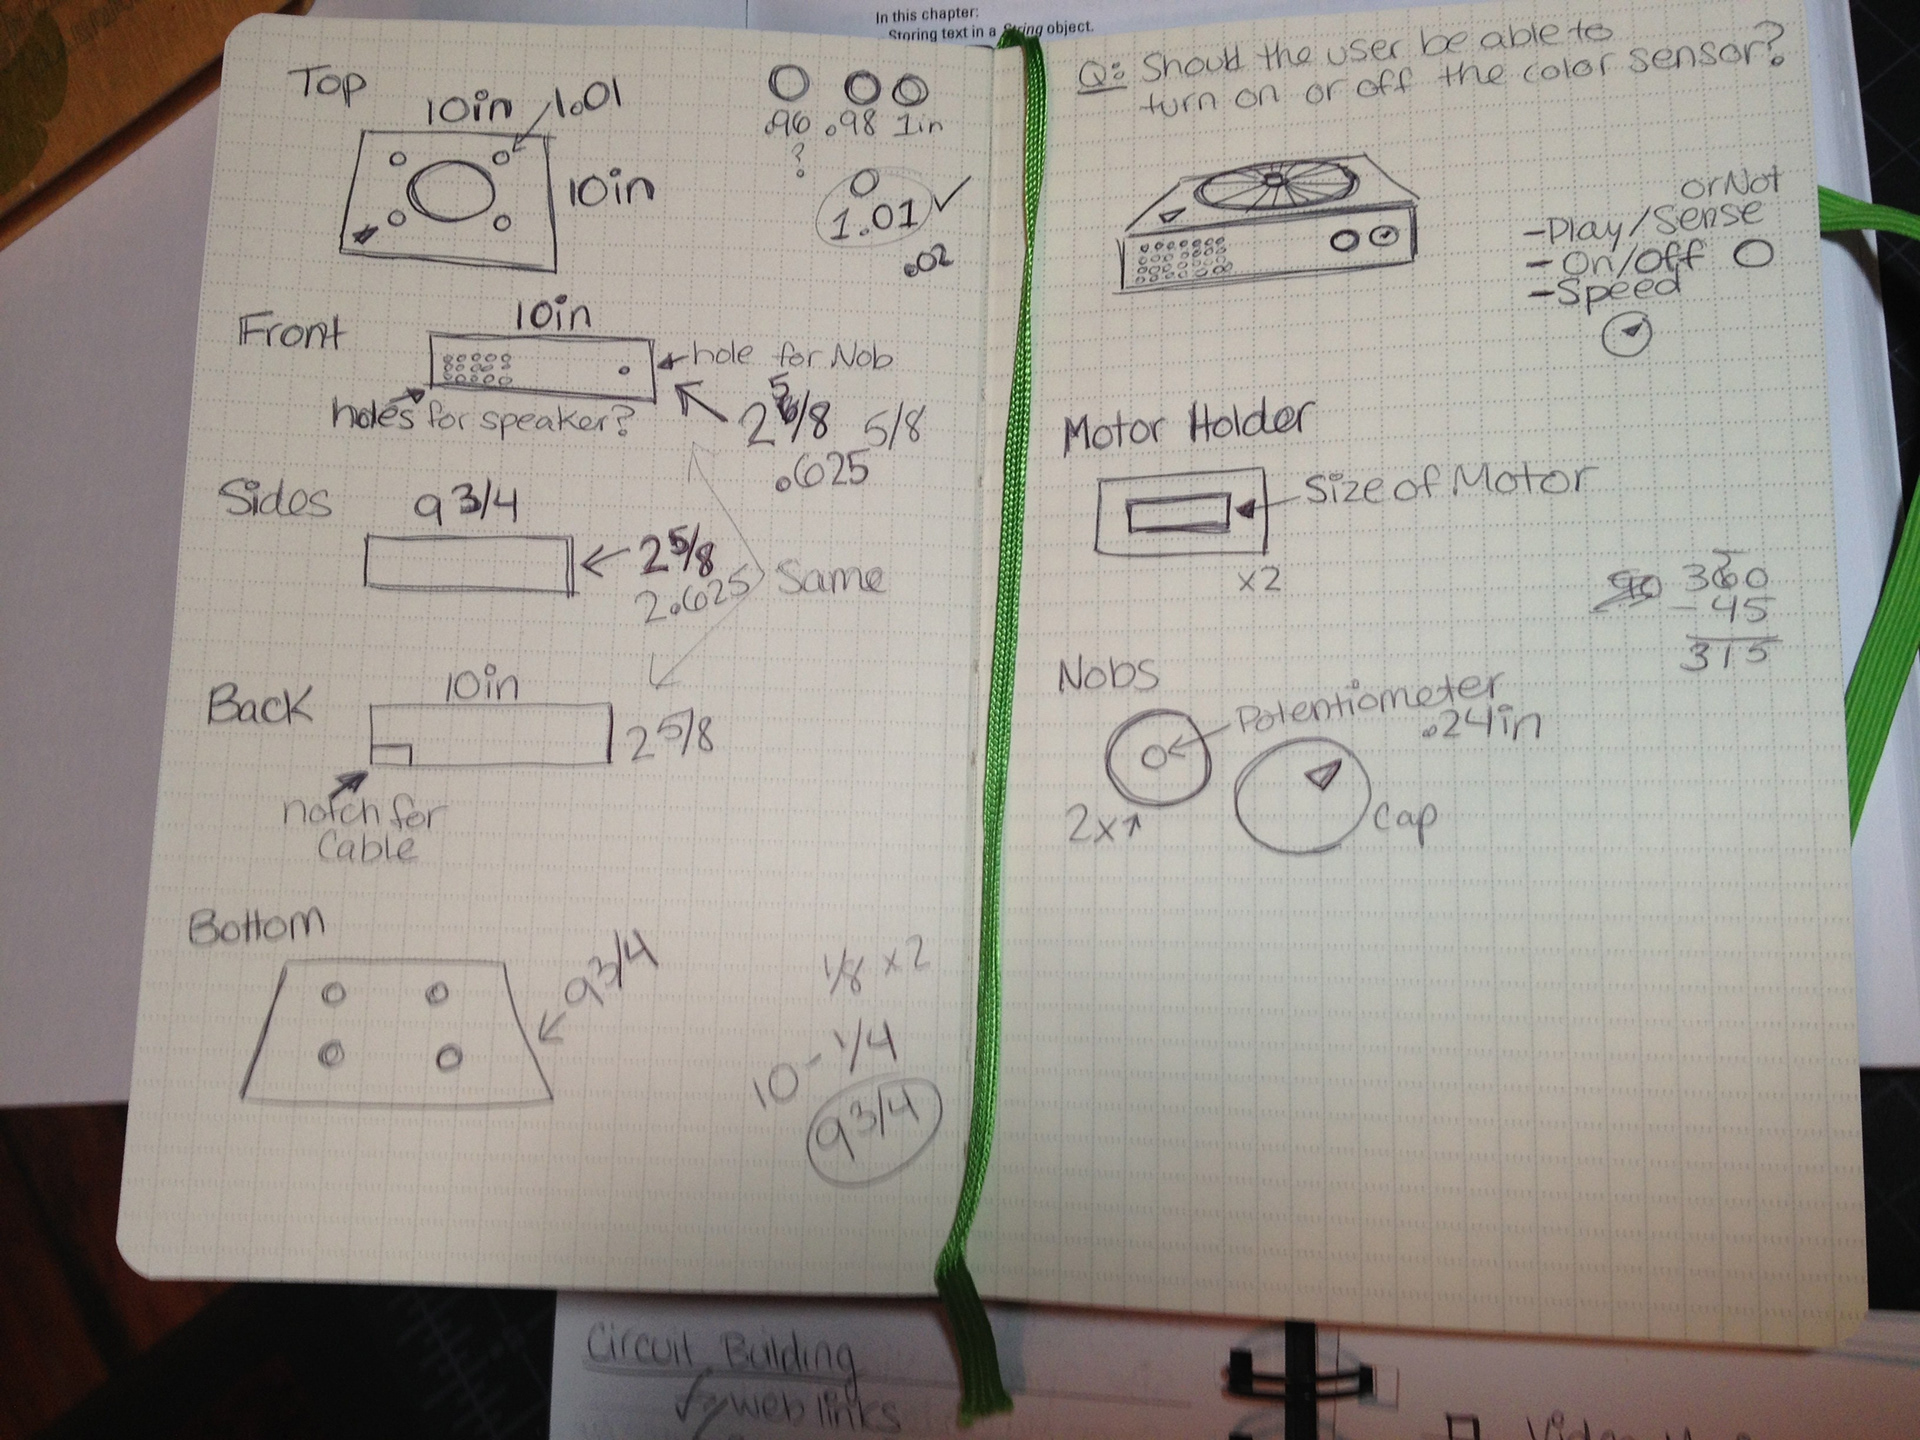 In this chapter:
Storing text in a String object.
Top
10in
1.01
10in
.96 .98 1in
?
1.01
.02
Front
10in
hole for Nob
holes for speaker?
2 5/8 5/8
.625
Sides
9 3/4
2 5/8
2.625
Same
Back
10in
2 5/8
notch for
Cable
Bottom
9 3/4
1/8 x2
10 - 1/4
9 3/4
Q: Should the user be able to
turn on or off the color sensor?
or Not
-Play/Sense
- On/Off
-Speed
Motor Holder
Size of Motor
x2
90 360
- 45
315
Nobs
Potentiometer
.24in
2x
Cap
Circuit Building
web links